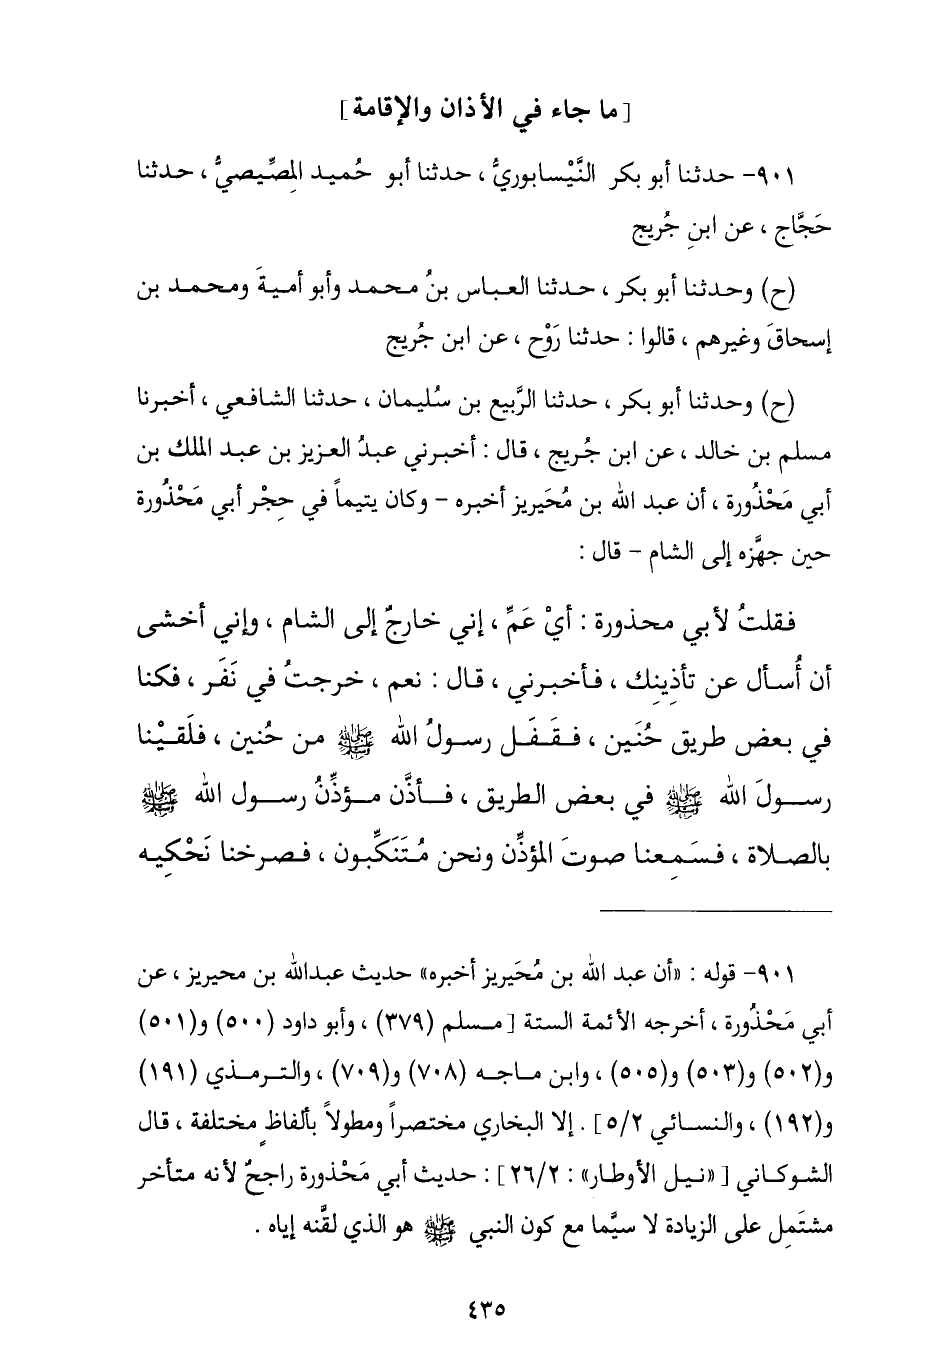 [ ما جاء في الأذان والإقامة ]
٩٠١- حدثنا أبو بكر النَّيْسابوريُّ ، حدثنا أبو حُميد المِصِّيصيُّ ، حدثنا
حَجَّاج ، عن ابنِ جُريج
(ح) وحدثنا أبو بكر ، حدثنا العباس بنُ محمد وأبو أميةَ ومحمد بن
إسحاقَ وغيرهم ، قالوا : حدثنا رَوْح ، عن ابن جُريج
(ح) وحدثنا أبو بكر ، حدثنا الرَّبيع بن سُليمان ، حدثنا الشافعي ، أخبرنا
مسلم بن خالد ، عن ابن جُريج ، قال : أخبرني عبدُ العزيز بن عبد الملك بن
أبي مَحْذُورة ، أن عبد الله بن مُحَيريز أخبره – وكان يتيماً في حِجْر أبي مَحْذُورة
حين جهَّزه إلى الشام – قال :
فقلتُ لأبي محذورة : أيْ عَمِّ ، إني خارجٌ إلى الشام ، وإني أخشى
أن أُسأل عن تأذِينِك ، فأخبرني ، قال : نعم ، خرجتُ في نَفَر ، فكنا
في بعض طريق حُنَين ، فقَفَل رسولُ الله ﷺ من حُنين ، فلَقيْنا
رسولَ الله ﷺ في بعض الطريق ، فأذَّن مؤذِّنُ رسول الله ﷺ
بالصلاة ، فسَمِعنا صوتَ المؤذِّن ونحن مُتَنَكِّبون ، فصرخنا نَحْكِيه
٩٠١- قوله : «أن عبد الله بن مُحَيريز أخبره» حديث عبدالله بن محيريز ، عن
أبي مَحْذُورة ، أخرجه الأئمة الستة [مسلم (٣٧٩) ، وأبو داود (٥٠٠) و(٥٠١)
و(٥٠٢) و(٥٠٣) و(٥٠٥) ، وابن ماجه (٧٠٨) و(٧٠٩) ، والترمذي (١٩١)
و(١٩٢) ، والنسائي ٥/٢] . إلا البخاري مختصراً ومطولاً بألفاظٍ مختلفة ، قال
الشوكاني [«نيل الأوطار» : ٢٦/٢] : حديث أبي مَحْذورة راجحٌ لأنه متأخر
مشتَمِل على الزيادة لا سيَّما مع كون النبي ﷺ هو الذي لقَّنه إياه .
٤٣٥